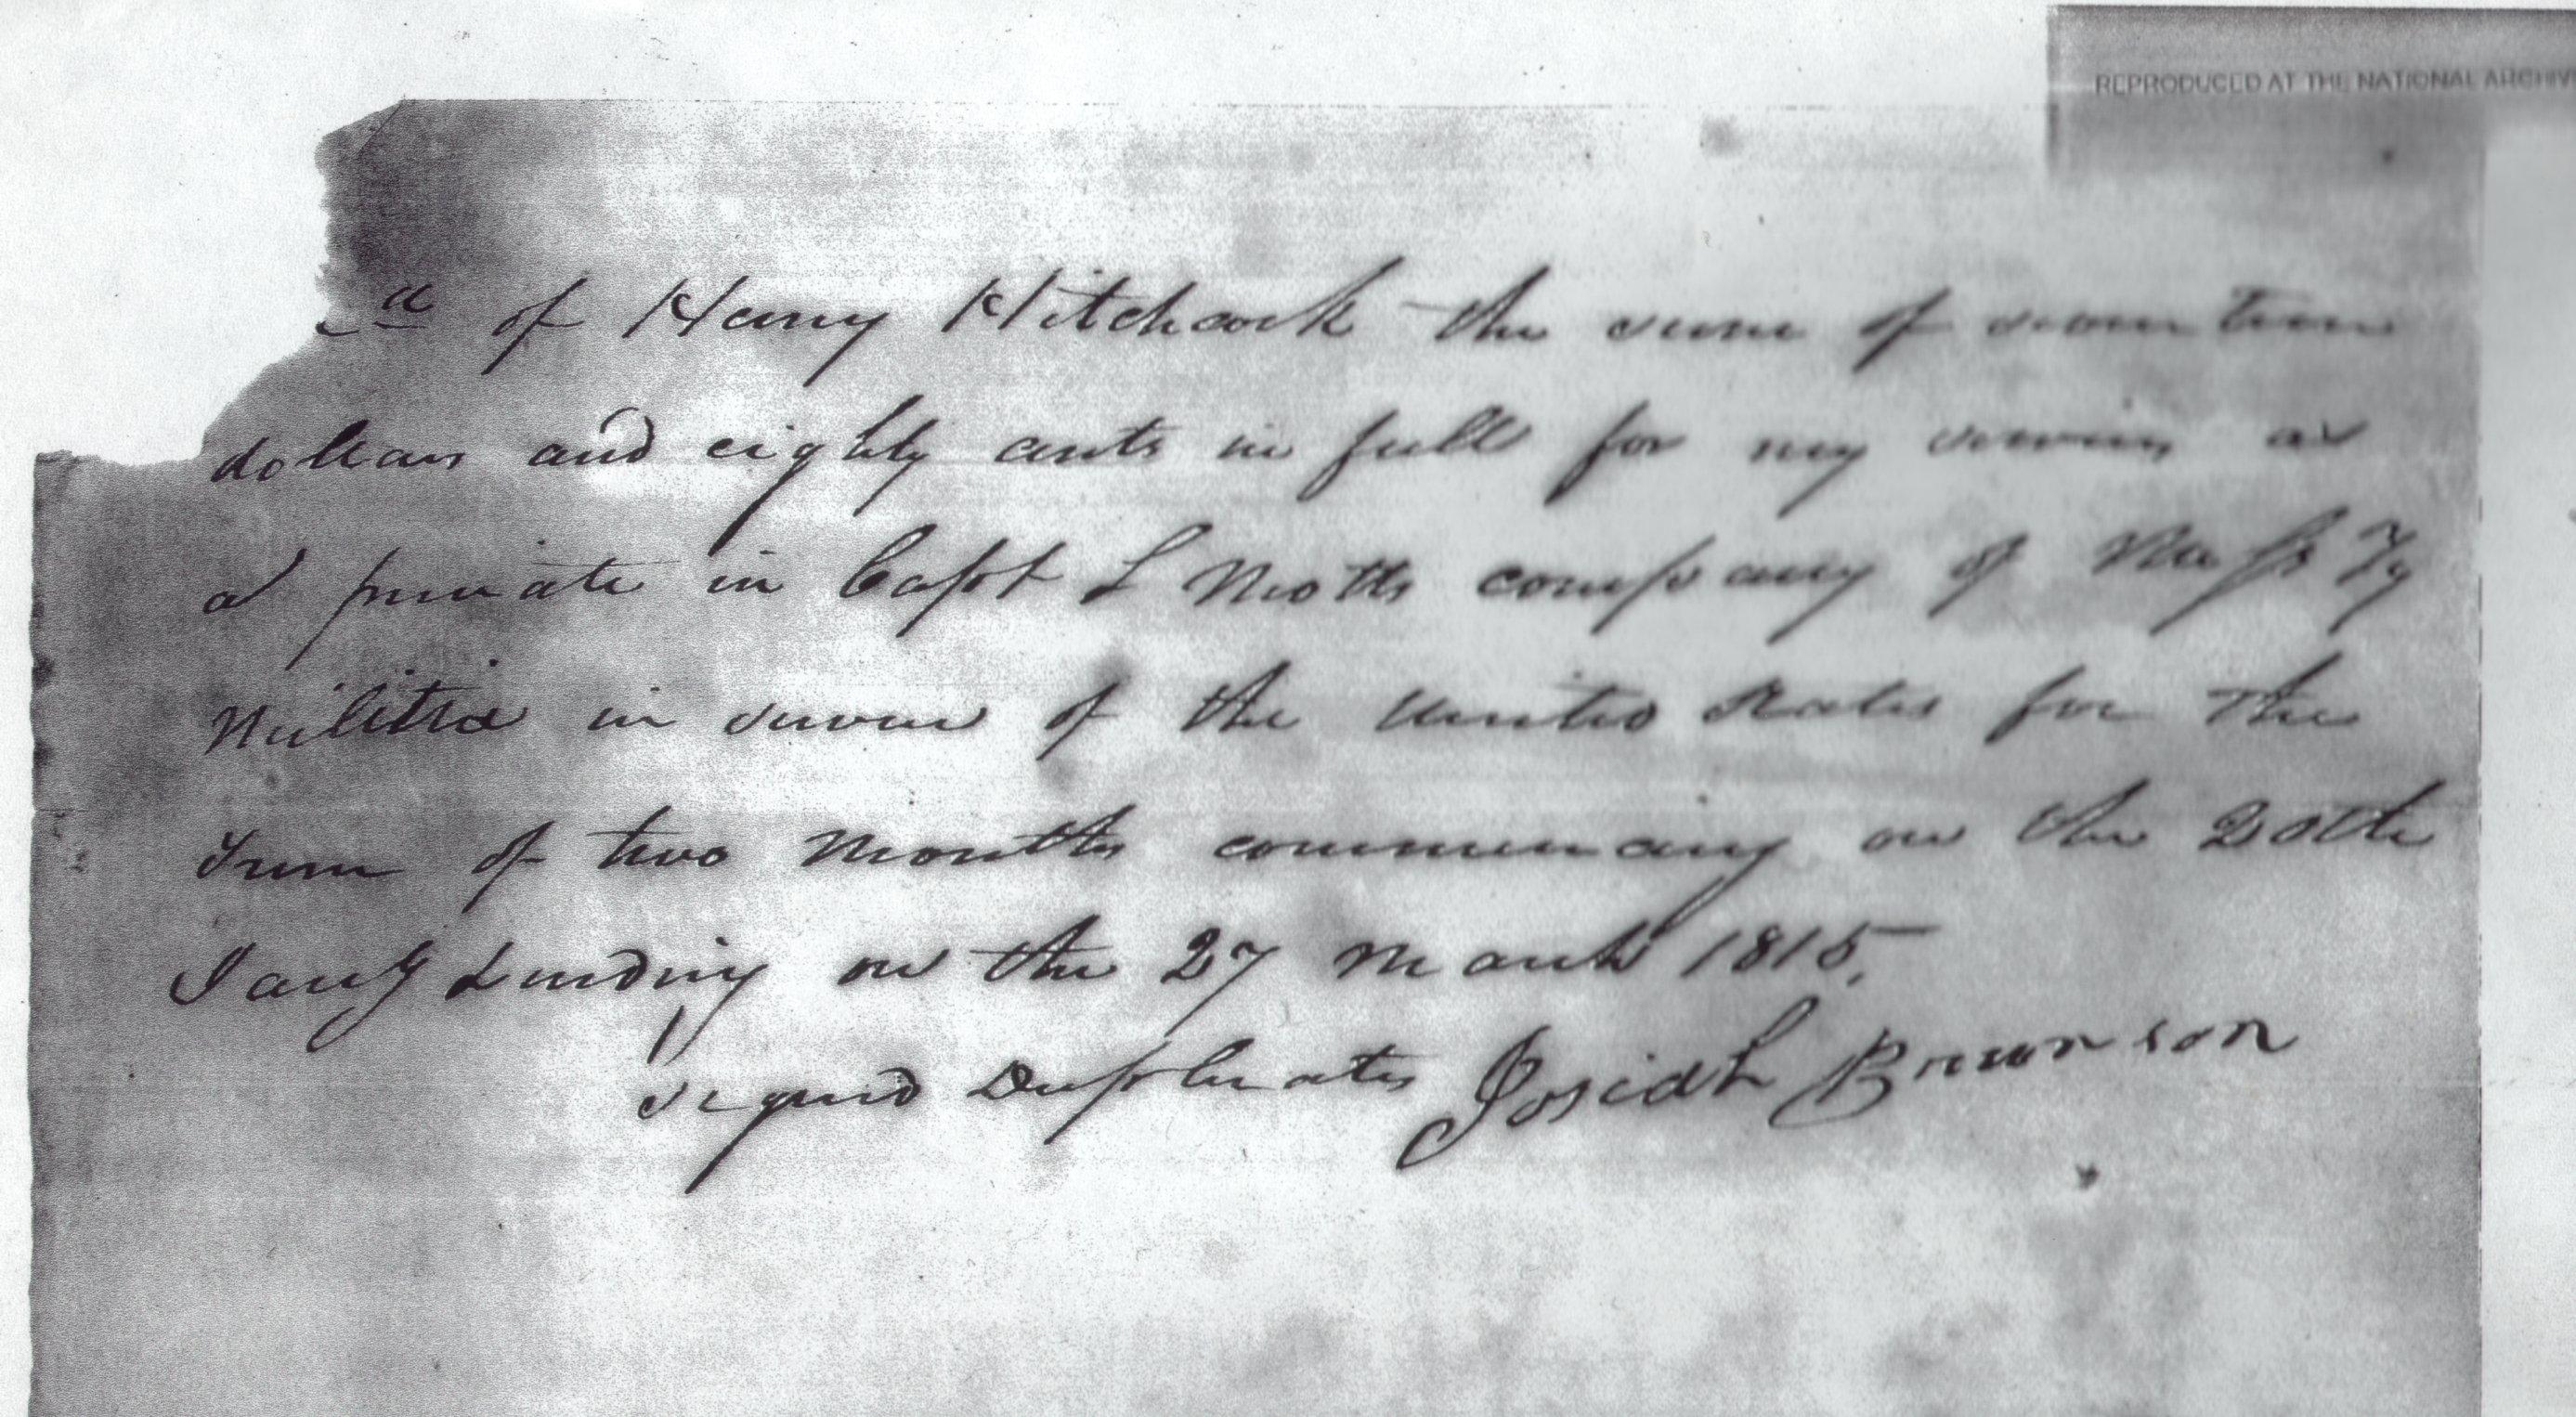 REPRODUCED AT THE NATIONAL ARCHIV
d of Henry Hitchcock the sum of seventeen
dollars and eighty cents in full for my services as
a private in Capt L Motts company of Miss Ty
Militia in service of the United States for the
term of two months commencing on the 20th
Jany & ending on the 27 March 1815.
Signed Duplicates Josiah Brunson